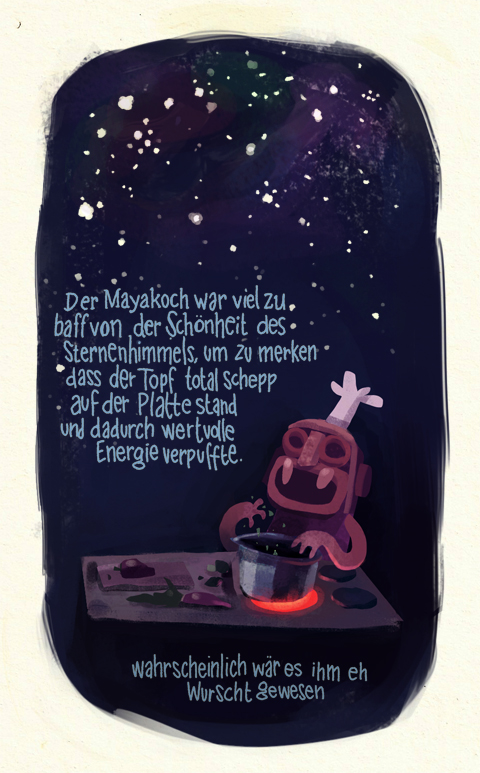 Der Mayakoch war viel zu
baff von der Schönheit des
Sternenhimmels, um zu merken
dass der Topf total schepp
auf der Platte stand
und dadurch wertvolle
Energie verpuffte.
wahrscheinlich wär es ihm eh
Wurscht gewesen